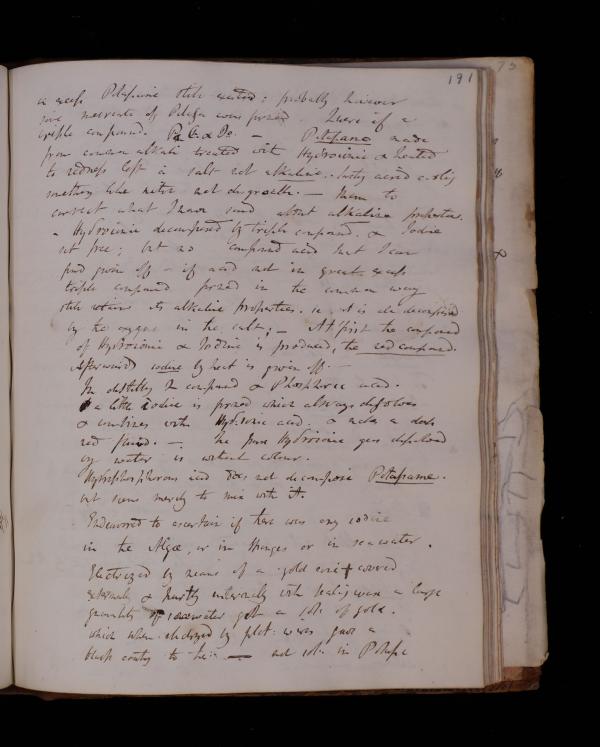 191
75
a small Potassium still existed; probably however
some mercuret of Potassm was formed. Query if a
triple compound. &
from common alkali treated with Hydroionic & heated
to redness left a salt not alkaline. tasty acrid & salty
something like nitre not disagreeable. — Mem to
correct what I have said about alkaline properties.
- Hydroionic decomposed by triple compound. & Iodine
set free; but no compound acid that I can
find given off - if acid not in great excess
triple compound formed in the common way
still retains its alkaline properties. ie it is decomposed
by the oxygene in the salt; — At first the compound
of Hydroionic & Iodine is produced, the red compound.
Afterwards iodine by heat is given off. —
In distilling compound & Phosphoric acid.
a little iodine is formed which always dissolves
& combines with Hydroionic acid. & makes a dark
red fluid. —. The pure Hydroionic gas dissolved
by water is without colour.
Hydrophosphorous acid does not decompose Potassame.
but seems merely to mix with it.
Endeavored to ascertain if there was any iodine
in the Algæ, or in Sponges or in sea water.
Electrized by means of a gold wire covered
externally & partly internally with sealing wax a large
quantity of sea water got a sol: of gold.
which when electrized by plat: wires gave a
black coating to the — not sol: in Potash